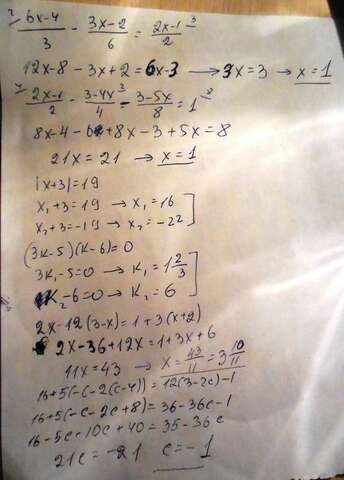 2 6x-4/3 - 3x-2/6 = 2x-1/2 3
12x-8-3x+2=6x-3 → 3x=3 → x=1
4 2x-1/2 - 3-4x/4 - 3-5x/8 = 1
8x-4-6+8x-3+5x=8
21x=21 → x=1
|x+3|=19
x₁+3=19 → x₁=16
x₂+3=-19 → x₂=-22
(3K-5)(K-6)=0
3K₁-5=0 → K₁=1 2/3
K₂-6=0 → K₂=6
2x-12(3-x)=1+3(x+2)
2x-36+12x=1+3x+6
11x=43 → x=43/11=3 10/11
16+5(-c-2(c-4))=12(3-2c)-1
16+5(-c-2c+8)=36-36c-1
16-5c-10c+40=35-36c
21c=-21 c=-1